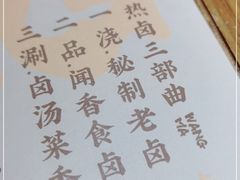 热卤三部曲
WANG
XIA
一浇·秘制老卤
二品·闻香食卤
三涮·卤汤菜香